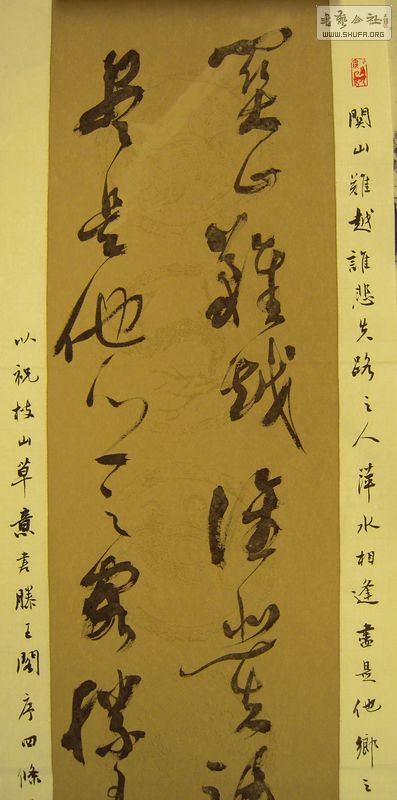 書藝公社
WWW.SHUFA.ORG
関山難越誰悲失路之人萍水相逢盡是他鄉之
関山難越誰悲失路
盡是他鄉之客滕王
以祝枝山草意書滕王閣序四條